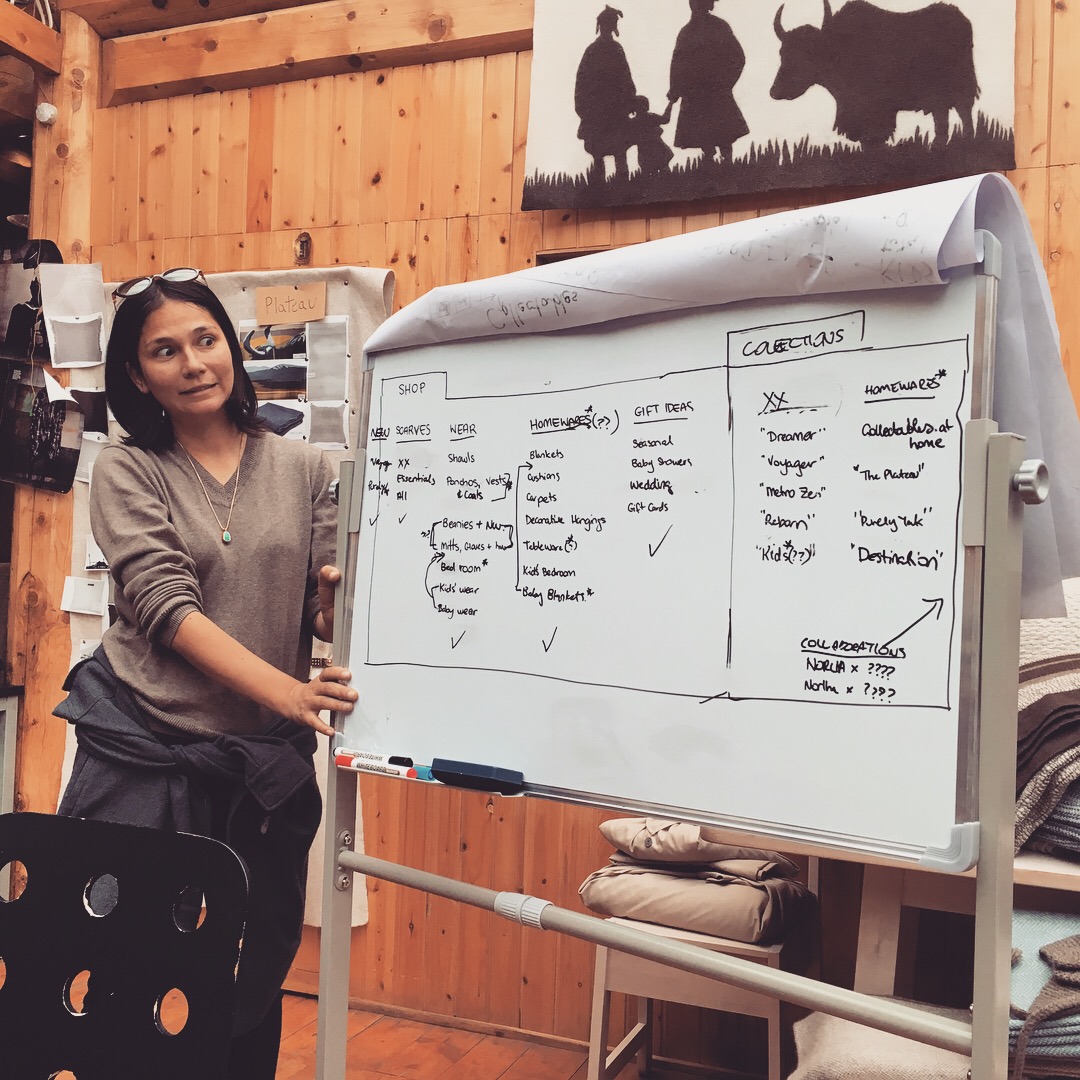 Plateau
Collectables
SHOP
NEW
SCARVES
XX
Essentials
All
✓
✓
WEAR
Shawls
Ponchos, vests
& Coats
Beanies + New
Mitts, Gloves +
Bed room*
Kids' wear
Baby wear
✓
HOMEWARES*(??)
Blankets
Cushions
Carpets
Decorative Hangings
Tableware(*)
Kid's Bedroom
Baby Blankets.*
✓
GIFT IDEAS
Seasonal
Baby Showers
Wedding
Gift Cards
✓
COLLECTIONS
XX
"Dreamer"
"Voyager"
"Metro Zen"
"Reborn"
"Kid's(??)"
HOMEWARES*
Collectables.at
home
"The Plateau"
"Purely Yak"
"Destination"
COLLABORATIONS
NORLHA x ????
Norlha x ????
WHITEBOARD